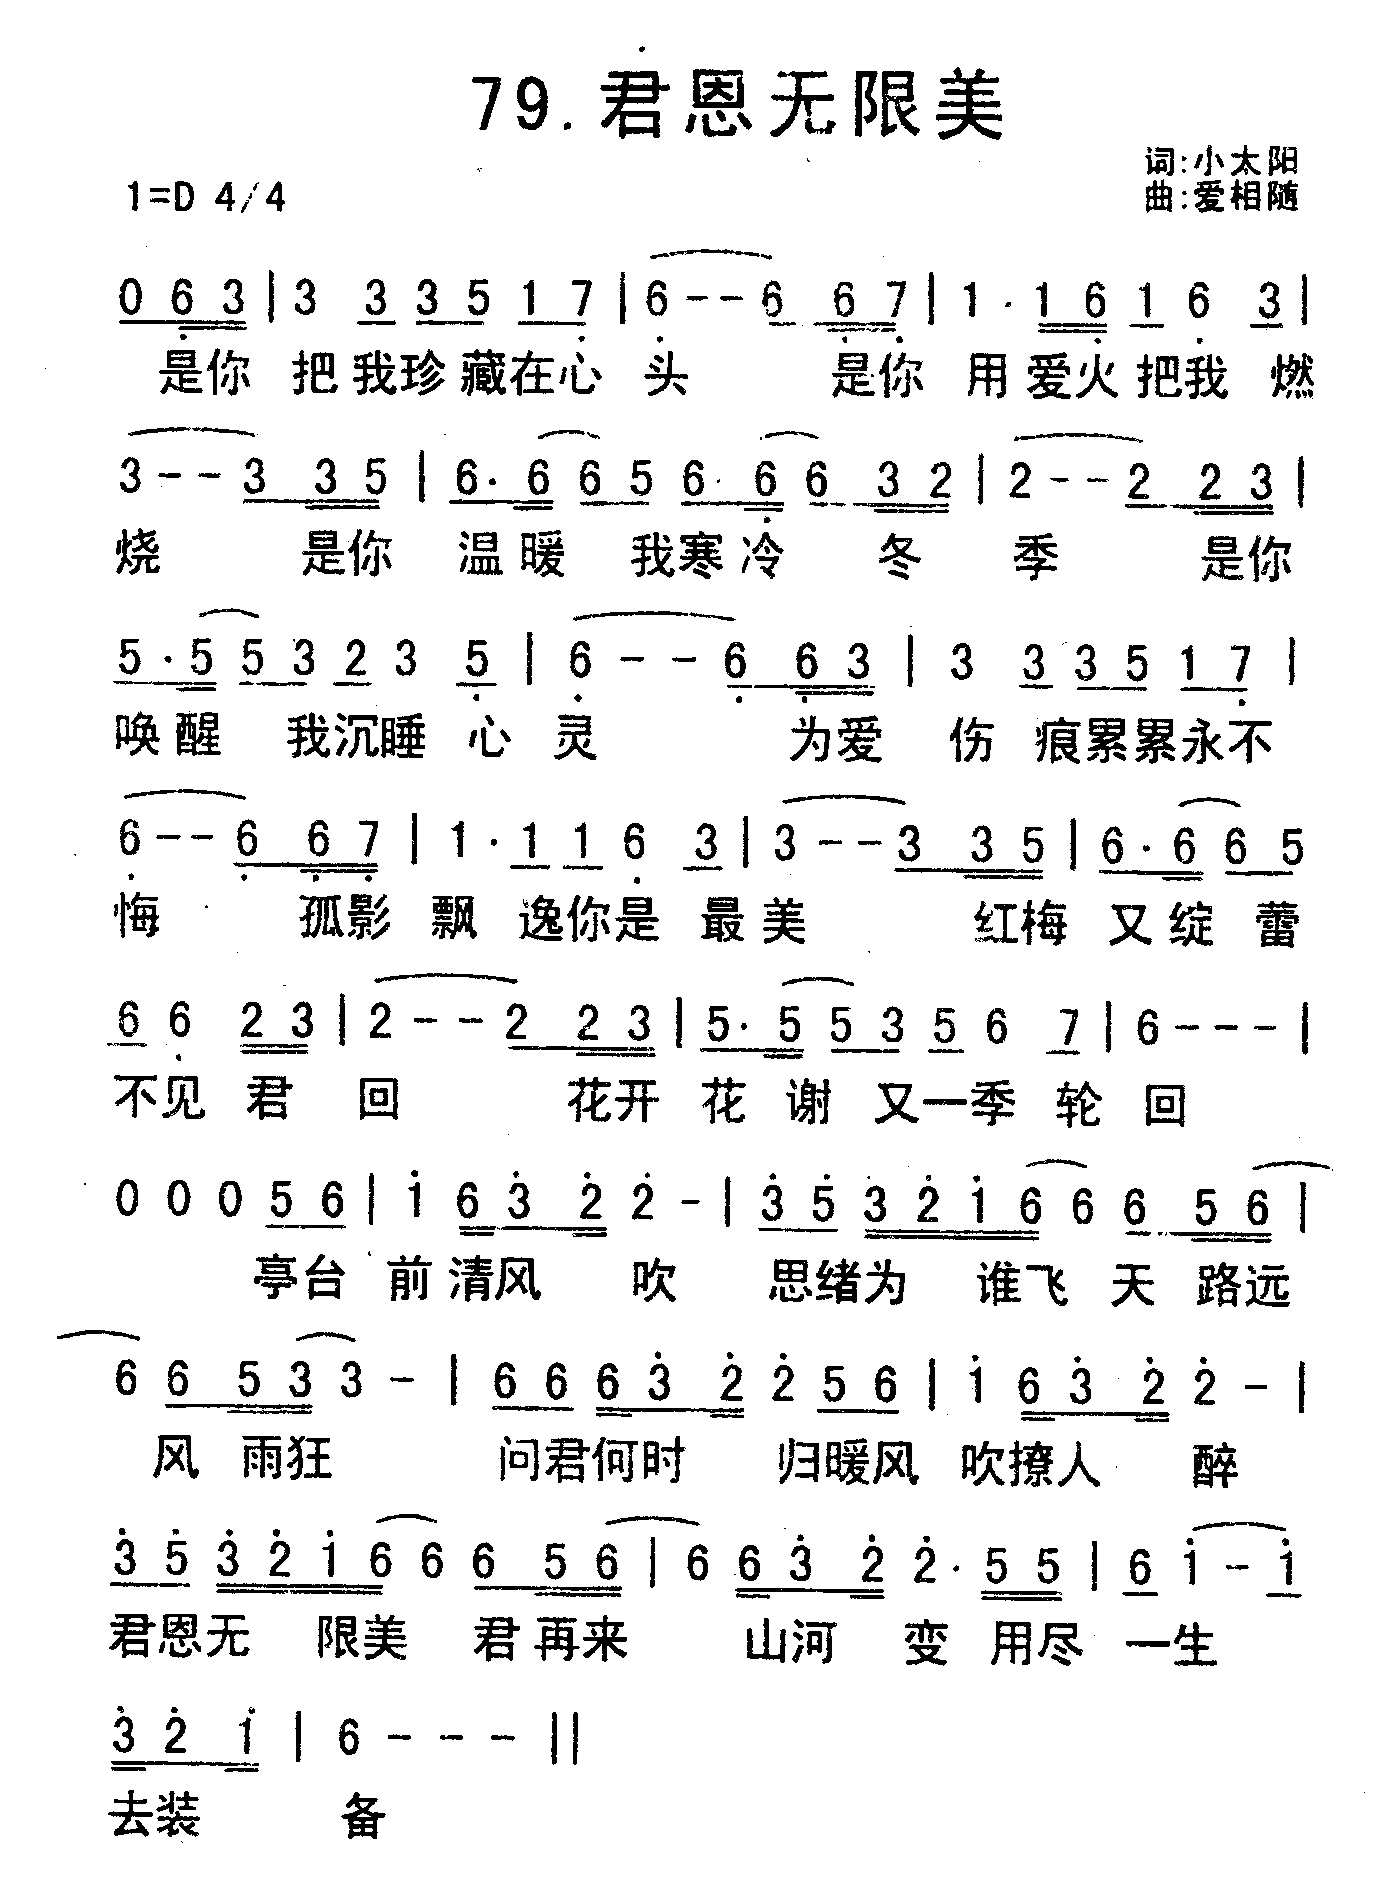 79.君恩无限美
词:小太阳
1=D 4/4
曲:爱相随
0 6 3 | 3 3 3 5 1 7 | 6 - - 6 6 7 | 1 · 1 6 1 6 3 |
是你 把我珍藏在心 头 是你 用爱火把我 燃
3 - - 3 3 5 | 6 · 6 6 5 6 · 6 6 3 2 | 2 - - 2 2 3 |
烧 是你 温暖 我寒冷 冬 季 是你
5 · 5 5 3 2 3 5 | 6 - - 6 6 3 | 3 3 3 5 1 7 |
唤醒 我沉睡 心 灵 为爱 伤 痕累累永不
6 - - 6 6 7 | 1 · 1 1 6 3 | 3 - - 3 3 5 | 6 · 6 6 5
悔 孤影 飘 逸你是 最美 红梅 又绽 蕾
6 6 2 3 | 2 - - 2 2 3 | 5 · 5 5 3 5 6 7 | 6 - - - |
不见 君 回 花开 花 谢 又一季 轮 回
0 0 0 5 6 | 1 6 3 2 2 - | 3 5 3 2 1 6 6 6 5 6 |
亭台 前清风 吹 思绪为 谁飞 天 路远
6 6 5 3 3 - | 6 6 6 3 2 2 5 6 | 1 6 3 2 2 - |
风 雨狂 问君何时 归暖风 吹撩人 醉
3 5 3 2 1 6 6 6 5 6 | 6 6 3 2 2 · 5 5 | 6 1 - 1
君恩无 限美 君再来 山河 变 用尽 一生
3 2 1 | 6 - - - ||
去装 备